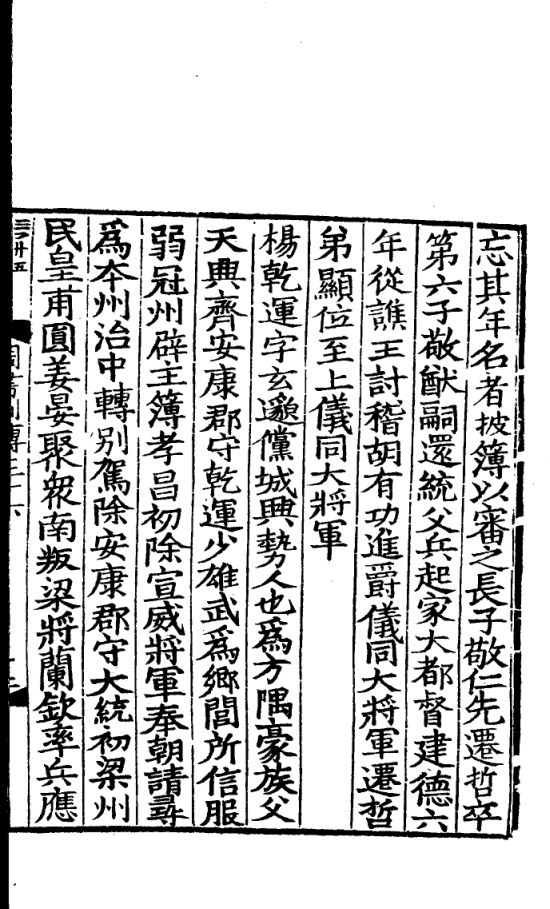 忘其年名者披簿以審之長子敬仁先遷哲卒
第六子敬猷嗣還統父兵起家大都督建德六
年從譙王討稽胡有功進爵儀同大將軍遷哲
弟顯位至上儀同大將軍
楊乾運字玄邈儻城興勢人也爲方隅豪族父
天興齊安康郡守乾運少雄武爲鄉閭所信服
弱冠州辟主簿孝昌初除宣威將軍奉朝請尋
爲本州治中轉別駕除安康郡守大統初梁州
民皇甫圓姜晏聚衆南叛梁將蘭欽率兵應